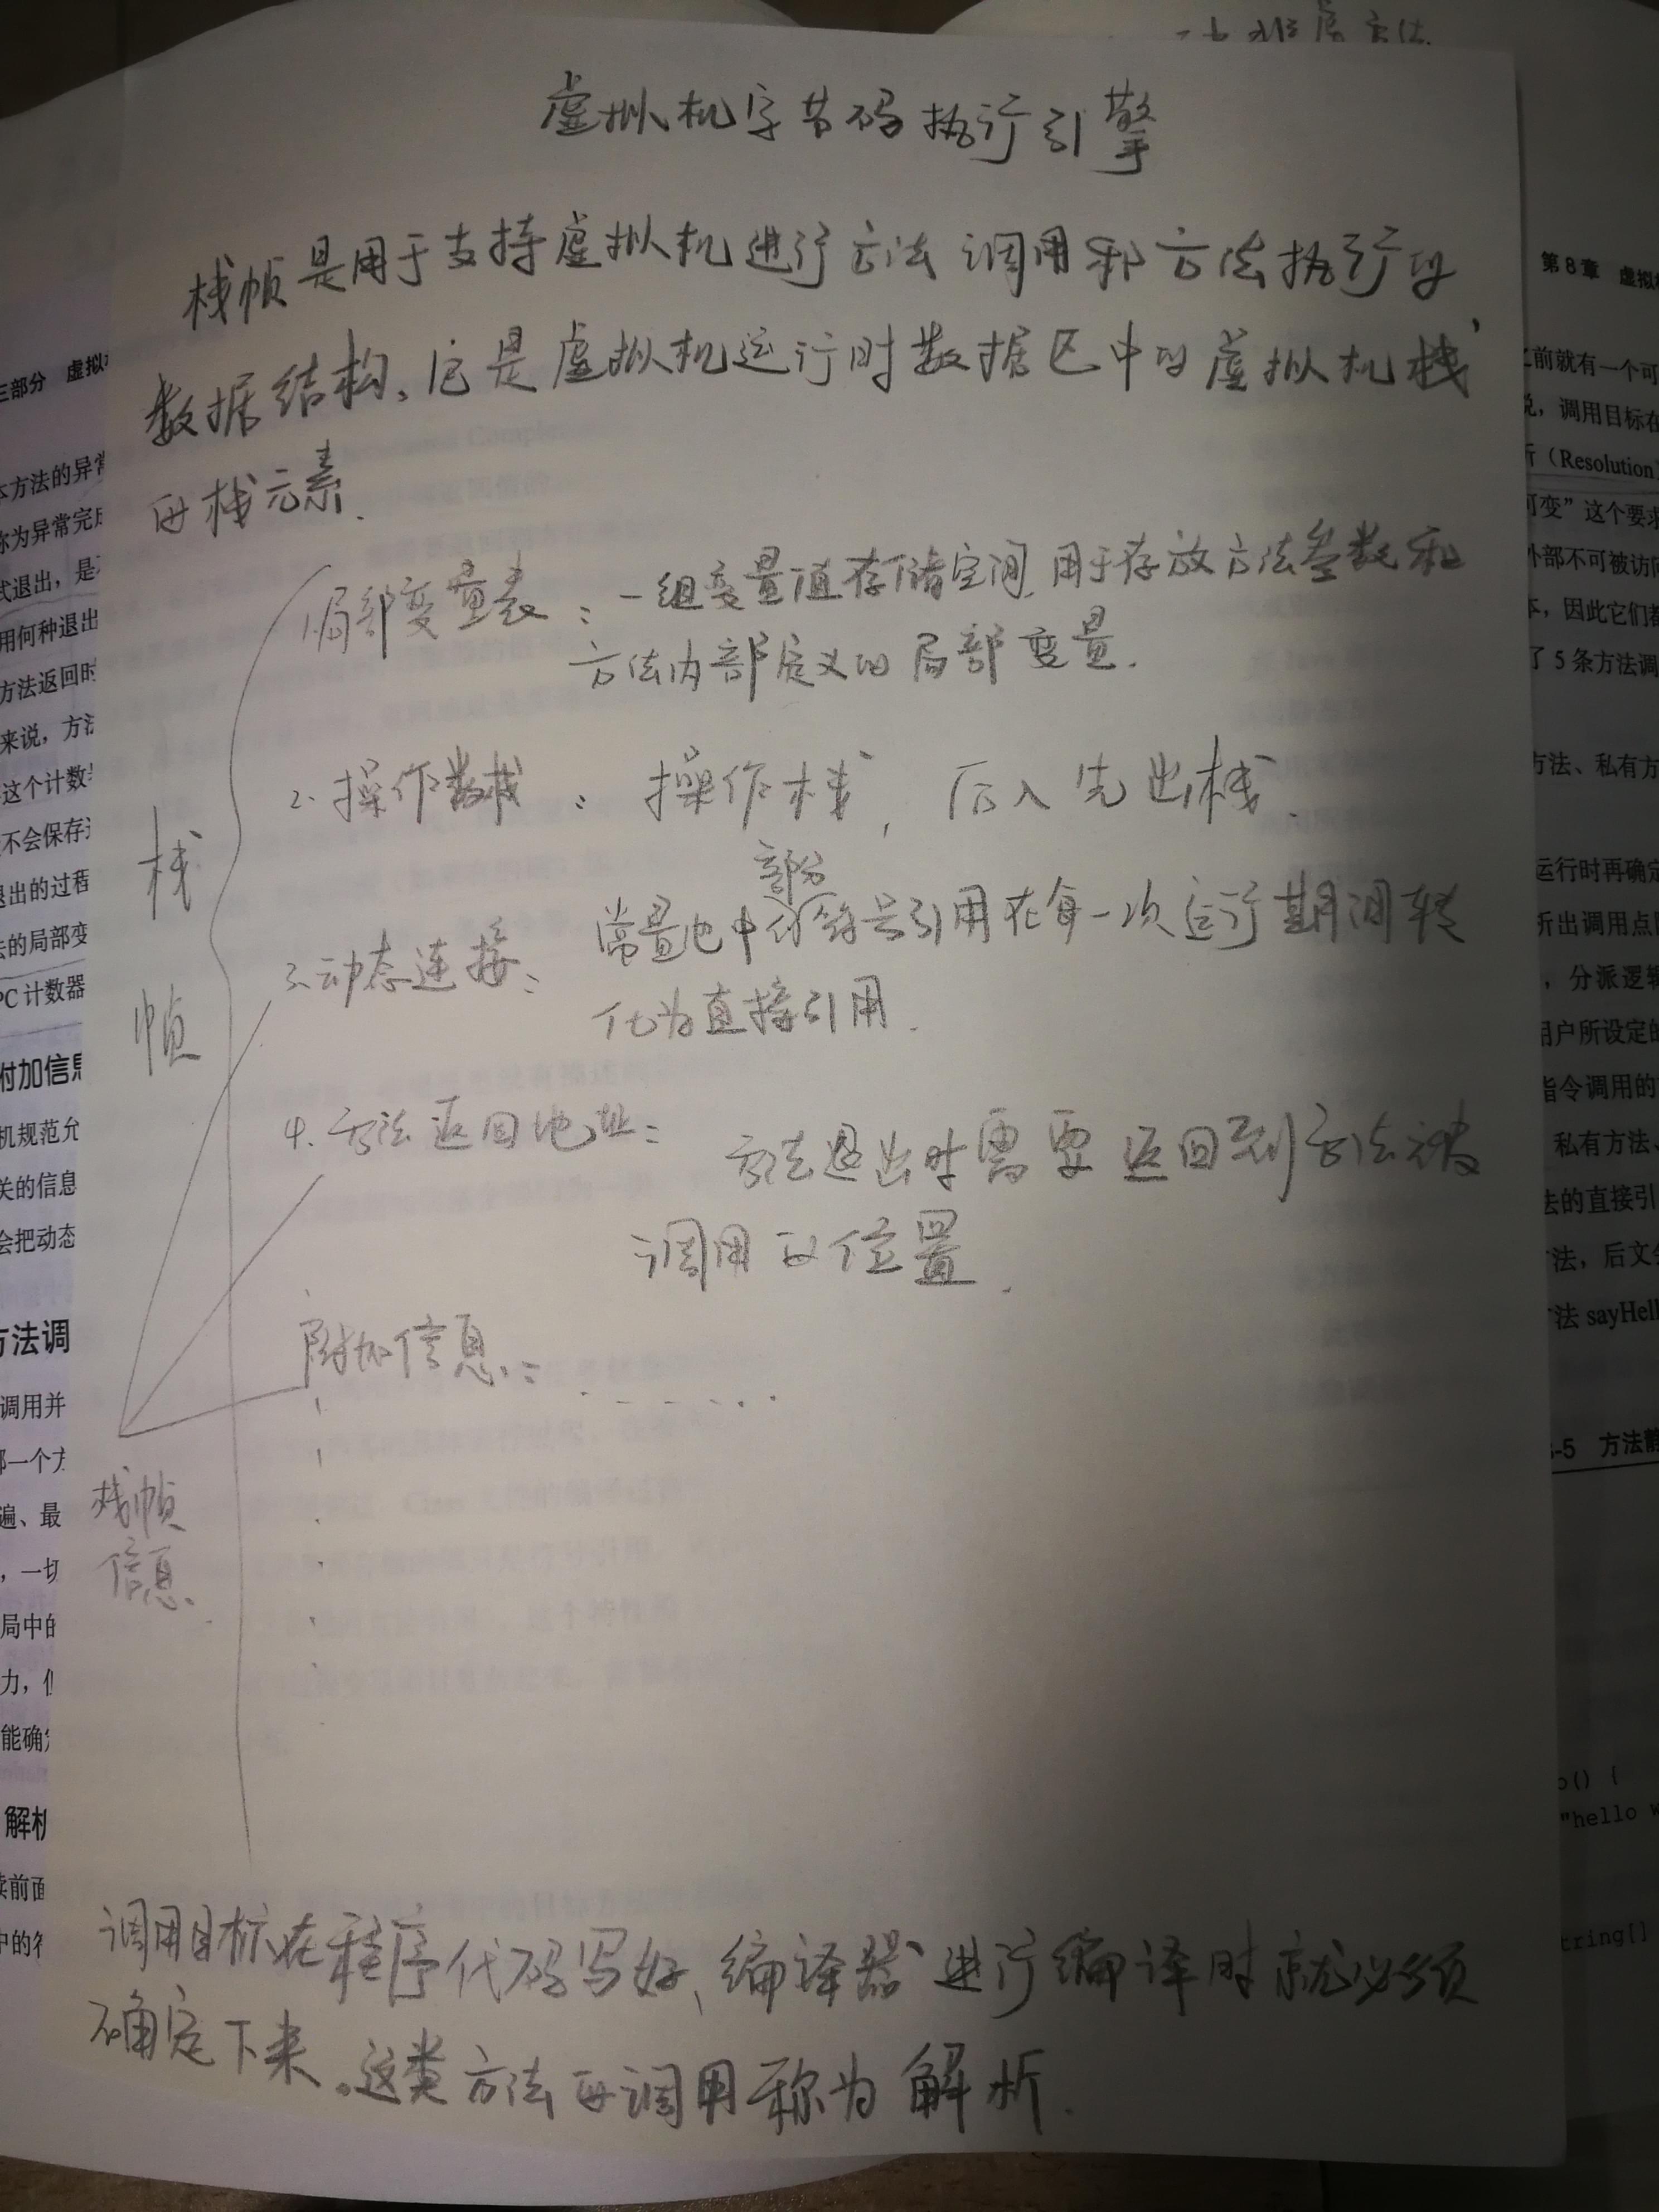 虚拟机字节码执行引擎
栈帧是用于支持虚拟机进行方法调用和方法执行的
数据结构。它是虚拟机运行时数据区中的虚拟机栈
的栈元素.
1.局部变量表：一组变量值存储空间.用于存放方法参数和
方法内部定义的局部变量.
2.操作数栈：操作栈，后入先出栈.
部分
3.动态连接：常量池中 符号引用在每一次运行期间转
化为直接引用.
4.方法返回地址：方法退出时需要返回到方法被
调用的位置.
附加信息：......
栈
帧
栈帧
信息.
调用目标在程序代码写好、编译器进行编译时就必须
确定下来。这类方法的调用称为解析.
第8章 虚拟
三部分 虚拟
本方法的异常
称为异常完成
式退出，是
用何种退出
方法返回时
来说，方法
这个计数
不会保存
退出的过程
法的局部变
PC计数器
附加信息
机规范允
关的信息
会把动态
方法调
调用并
那一个方
遍、最
，一切
局中的
力，但
能确定
解析
续前面
中的符
之前就有一个可
说，调用目标在
析（Resolution）
可变”这个要求
外部不可被访问
本，因此它们都
了5条方法调
方法、私有方
运行时再确定
析出调用点
，分派逻辑
用户所设定的
指令调用的
私有方法、
法的直接引
方法，后文
方法 sayHel
8-5 方法静
o() {
"hello w
tring[]